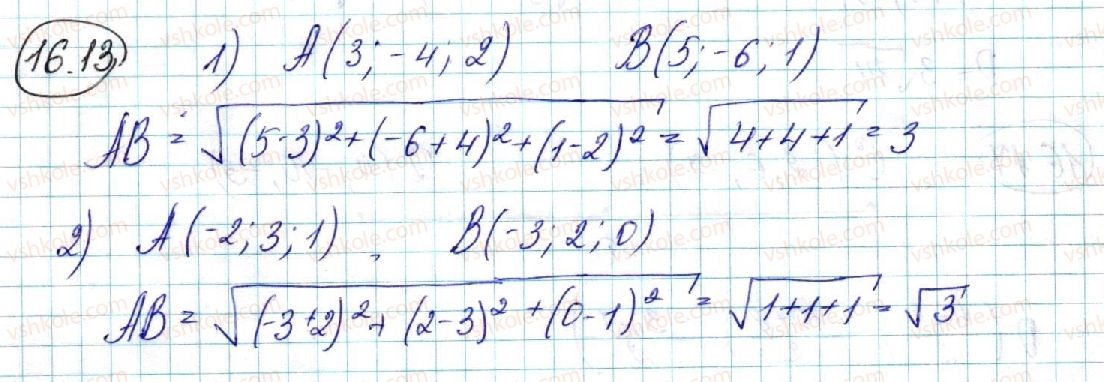 16.13) 1) A(3; -4; 2) B(5; -6; 1)
AB = √((5-3)²+(-6+4)²+(1-2)²) = √(4+4+1) = 3
2) A(-2; 3; 1), B(-3; 2; 0)
AB = √((-3+2)²+(2-3)²+(0-1)²) = √(1+1+1) = √3
vshkole.com